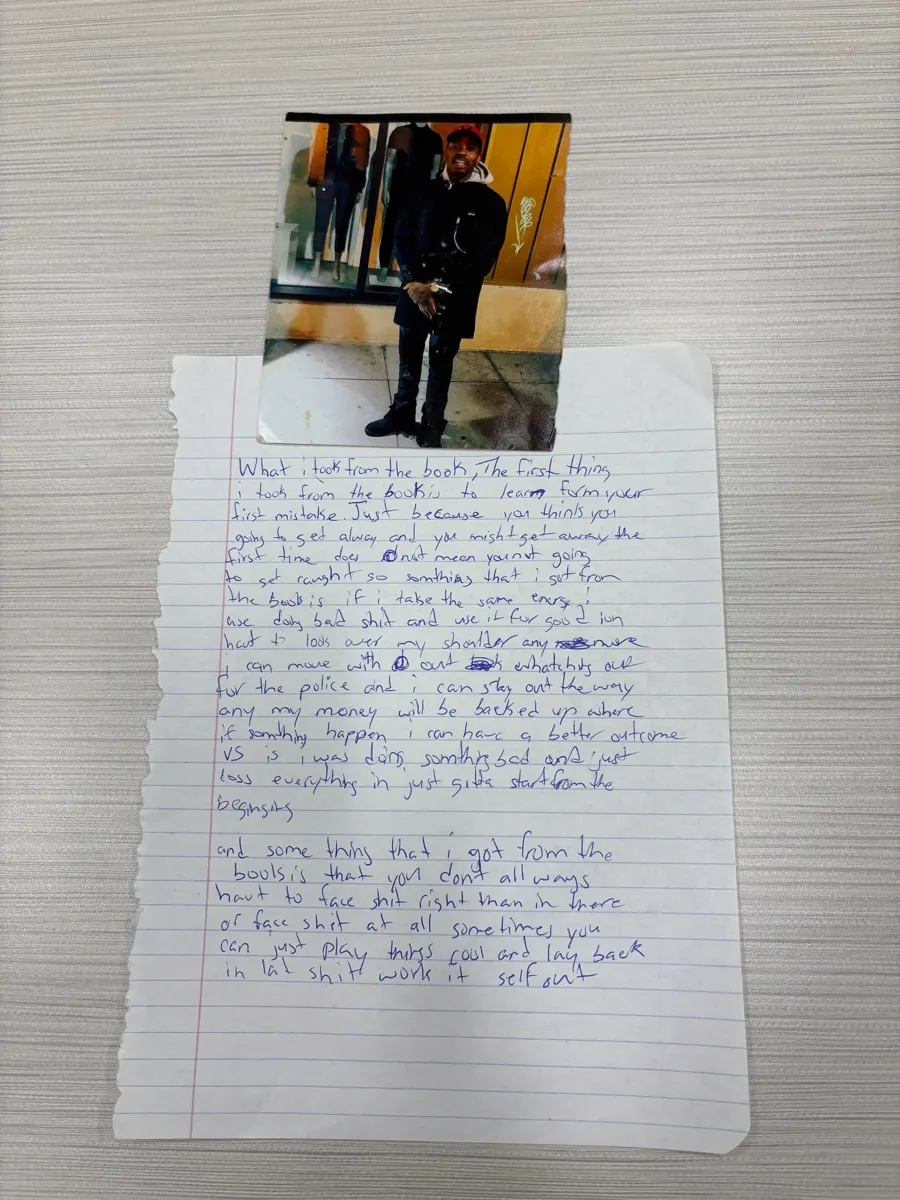 What i took from the book, The first thing
i took from the book is to learn form your
first mistake. Just because you thinks you
going to get alway and you might get away the
first time does not mean you not going
to get caught so somthing that i got from
the book is if i take the same energy i
use doing bad shit and use it for good ion
haut to look over my shoulder any more
i can move with out whatching out
for the police and i can stay out the way
any my money will be backed up where
if somthing happen i can have a better outcome
VS is i was doing somthing bad and just
loss everything in just gitta start from the
beginging
and some thing that i got from the
book is that you don't all ways
haut to face shit right than in there
or face shit at all sometimes you
can just play things cool and lay back
in lat shit work it self out